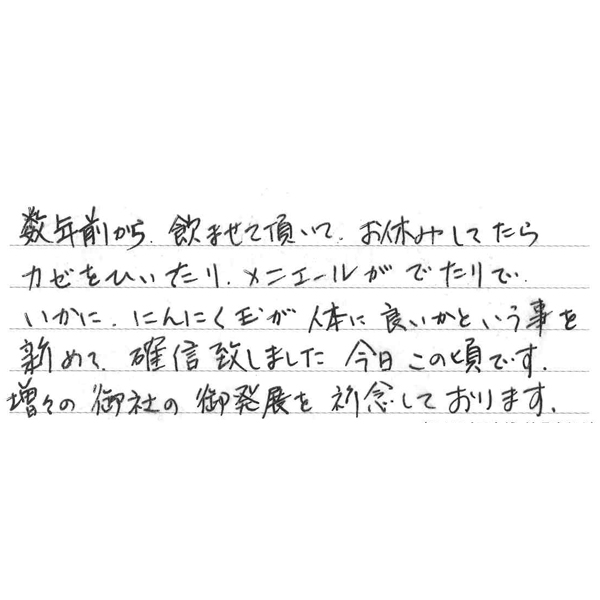 数年前から、飲ませて頂いて、お休みしてたら
カゼをひいたり、メニエールがでたりで、
いかに、にんにく玉が人体に良いかという事を
新めて、確信致しました今日この頃です。
増々の御社の御発展を祈念しております。